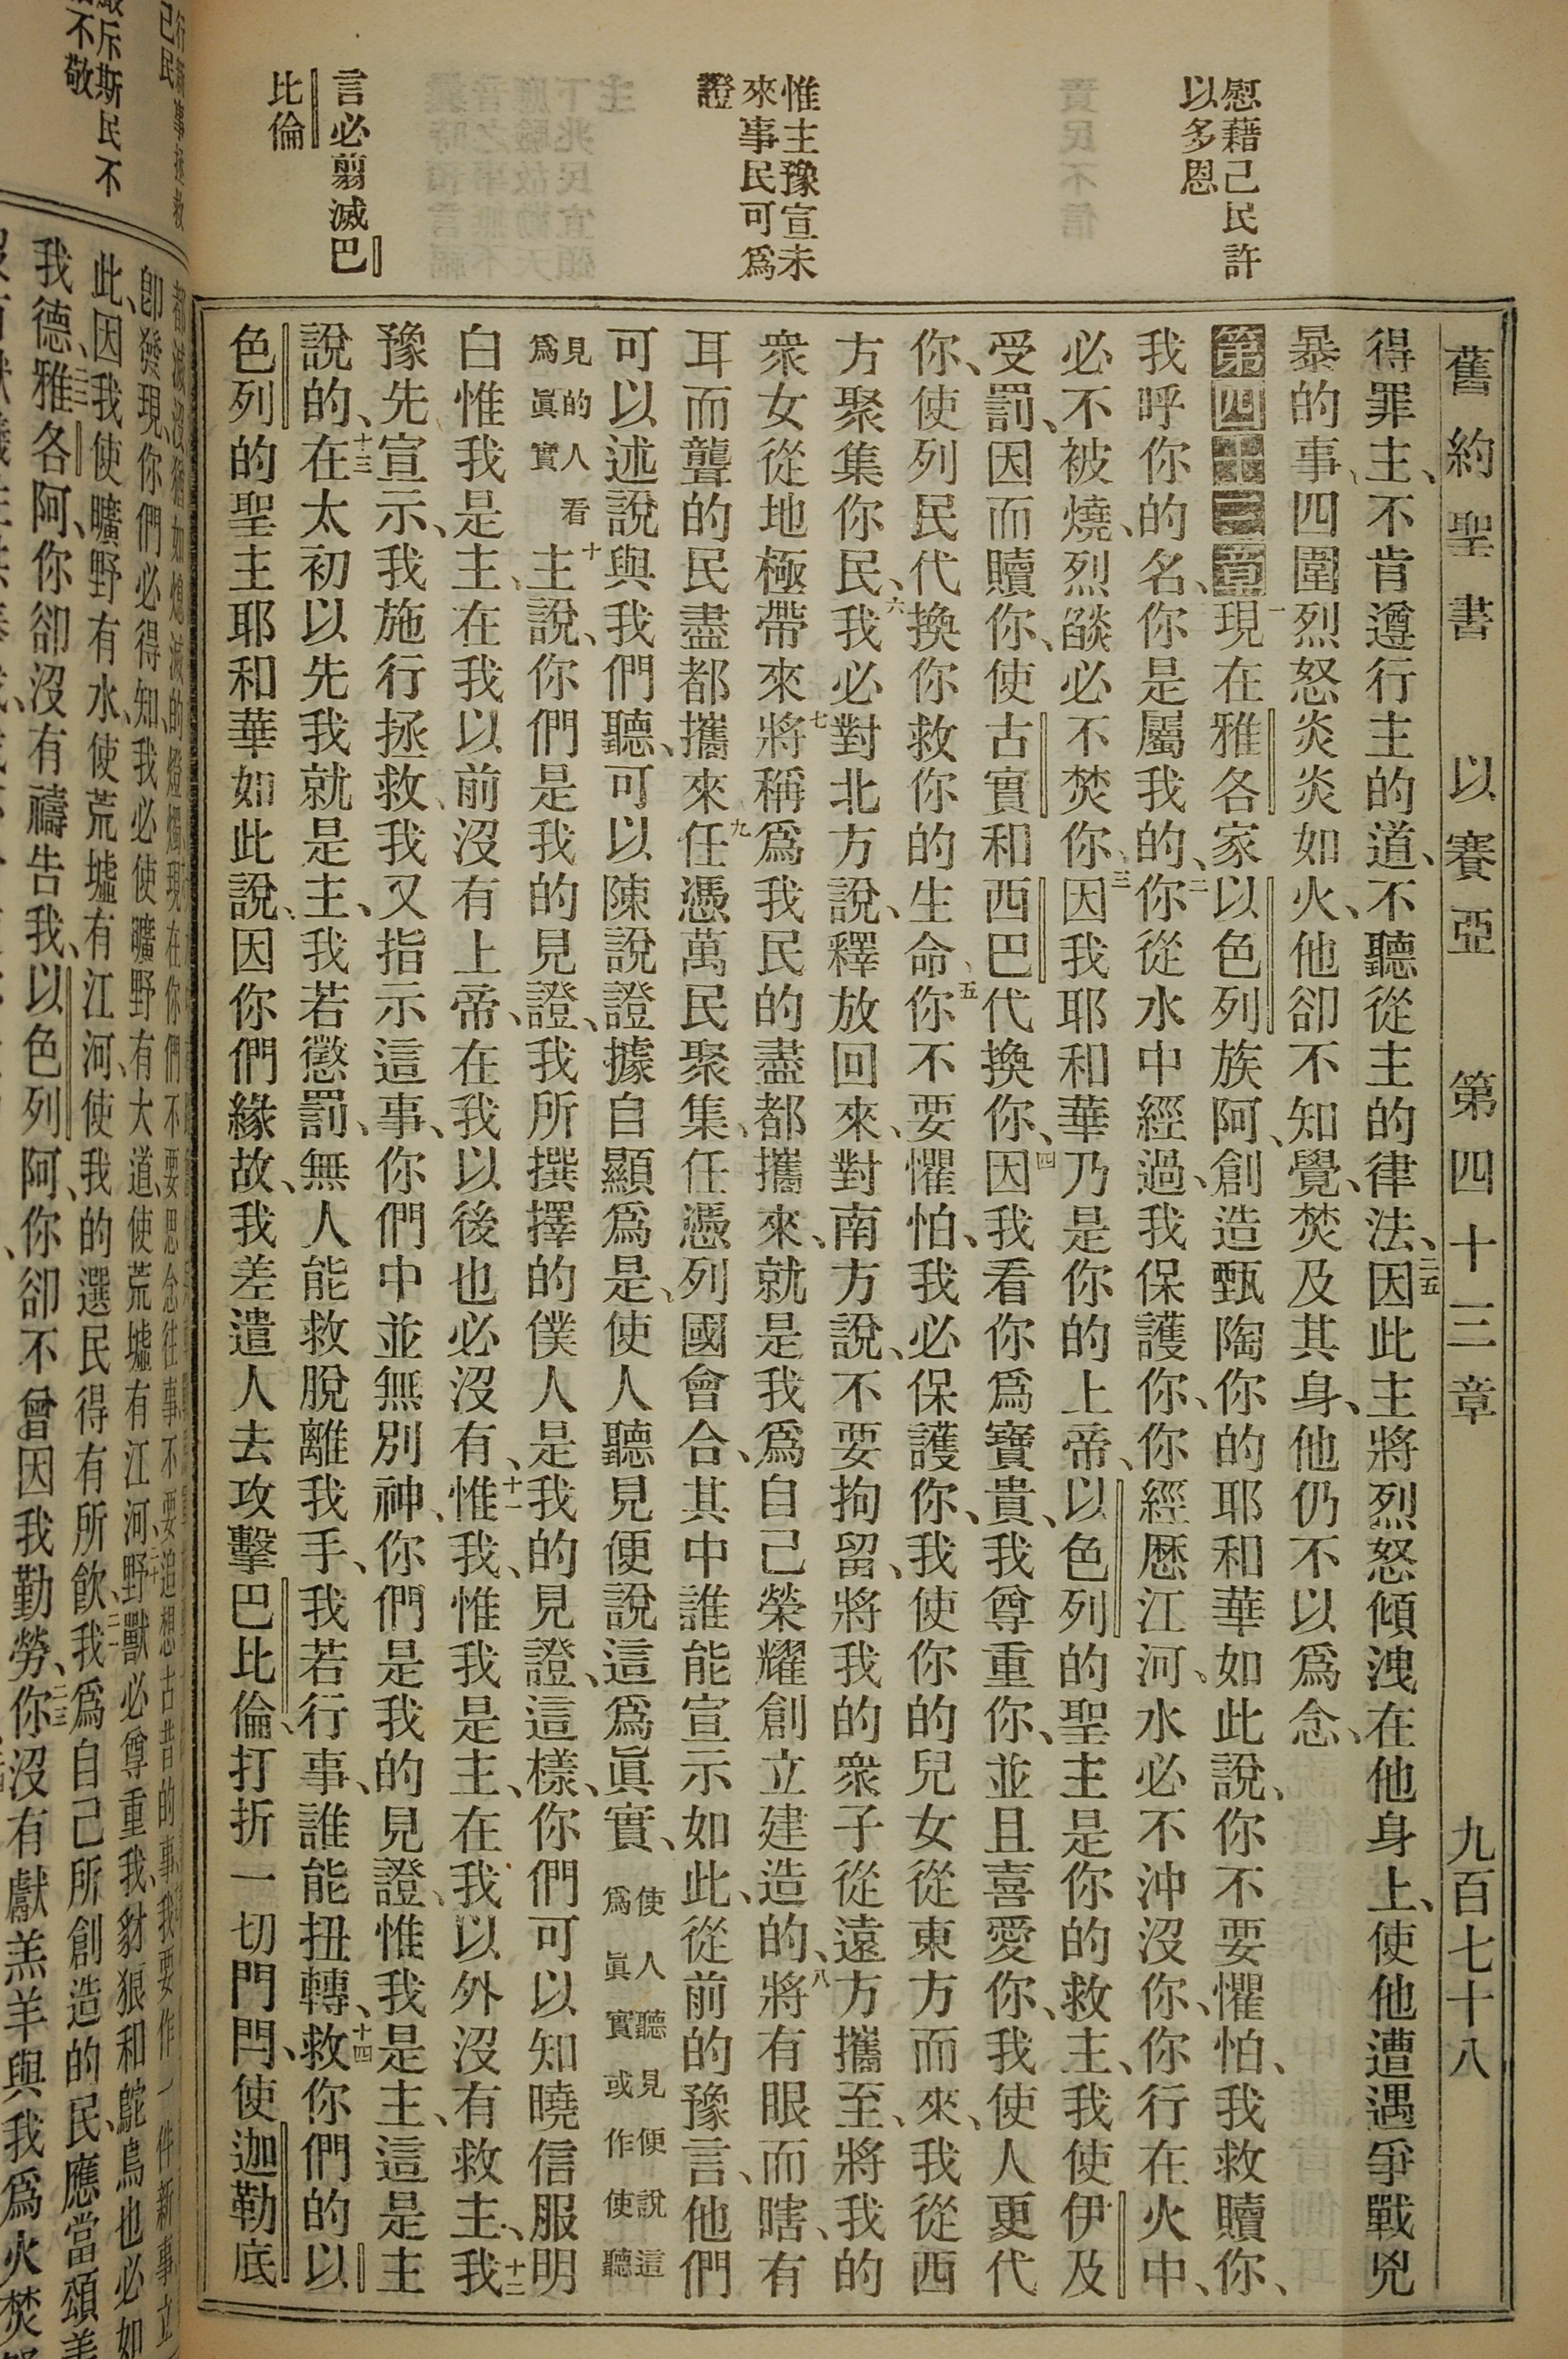 舊約聖書 以賽亞 第四十三章 九百七十八
慰藉己民許
以多恩
惟主豫宣未
來事民可爲
證
言必翦滅巴
比倫
得罪主、不肯遵行主的道、不聽從主的律法、二五因此主將烈怒傾洩在他身上、使他遭遇爭戰兇
暴的事、四圍烈怒炎炎如火、他卻不知覺、焚及其身、他仍不以爲念、
第四十三章一現在雅各家以色列族阿、創造甄陶你的耶和華如此說、你不要懼怕、我救贖你、
我呼你的名、你是屬我的、二你從水中經過、我保護你、你經歷江河、水必不沖沒你、你行在火中、
必不被燒、烈燄必不焚你、三因我耶和華乃是你的上帝、以色列的聖主是你的救主、我使伊及
受罰、因而贖你、使古實和西巴代換你、四因我看你爲寶貴、我尊重你、並且喜愛你、我使人更代
你、使列民代換你救你的生命、五你不要懼怕、我必保護你、我使你的兒女從東方而來、我從西
方聚集你民、六我必對北方說、釋放回來、對南方說、不要拘留、將我的衆子從遠方攜至、將我的
衆女從地極帶來、七將稱爲我民的盡都攜來、就是我爲自己榮耀創立建造的、八將有眼而瞎、有
耳而聾的民盡都攜來、九任憑萬民聚集、任憑列國會合、其中誰能宣示如此、從前的豫言、他們
可以述說與我們聽、可以陳說證據自顯爲是、使人聽見便說這爲眞實、使人聽見便說這爲眞實或作使聽
見的人看爲眞實十主說、你們是我的見證、我所撰擇的僕人是我的見證、這樣、你們可以知曉信服明
白惟我是主、在我以前沒有上帝、在我以後也必沒有、十一惟我、惟我是主、在我以外沒有救主、十二我
豫先宣示、我施行拯救、我又指示這事、你們中並無別神、你們是我的見證、惟我是主、這是主
說的、十三在太初以先我就是主、我若懲罰、無人能救脫離我手、我若行事、誰能扭轉、十四救你們的以
色列的聖主耶和華如此說、因你們緣故、我差遣人去攻擊巴比倫、打折一切門閂、使迦勒底
嚴斥斯民不
不敬
卽發現、你們必得知、我必使曠野有大道、使荒墟有江河、二十野獸必尊重我、豺狼和鴕鳥也必如
此、因我使曠野有水、使荒墟有江河、使我的選民得有所飲、二一我爲自己所創造的民、應當頌美
我德、二二雅各阿、你卻沒有禱告我、以色列阿、你卻不曾因我勤勞、二三你沒有獻羔羊與我爲火焚